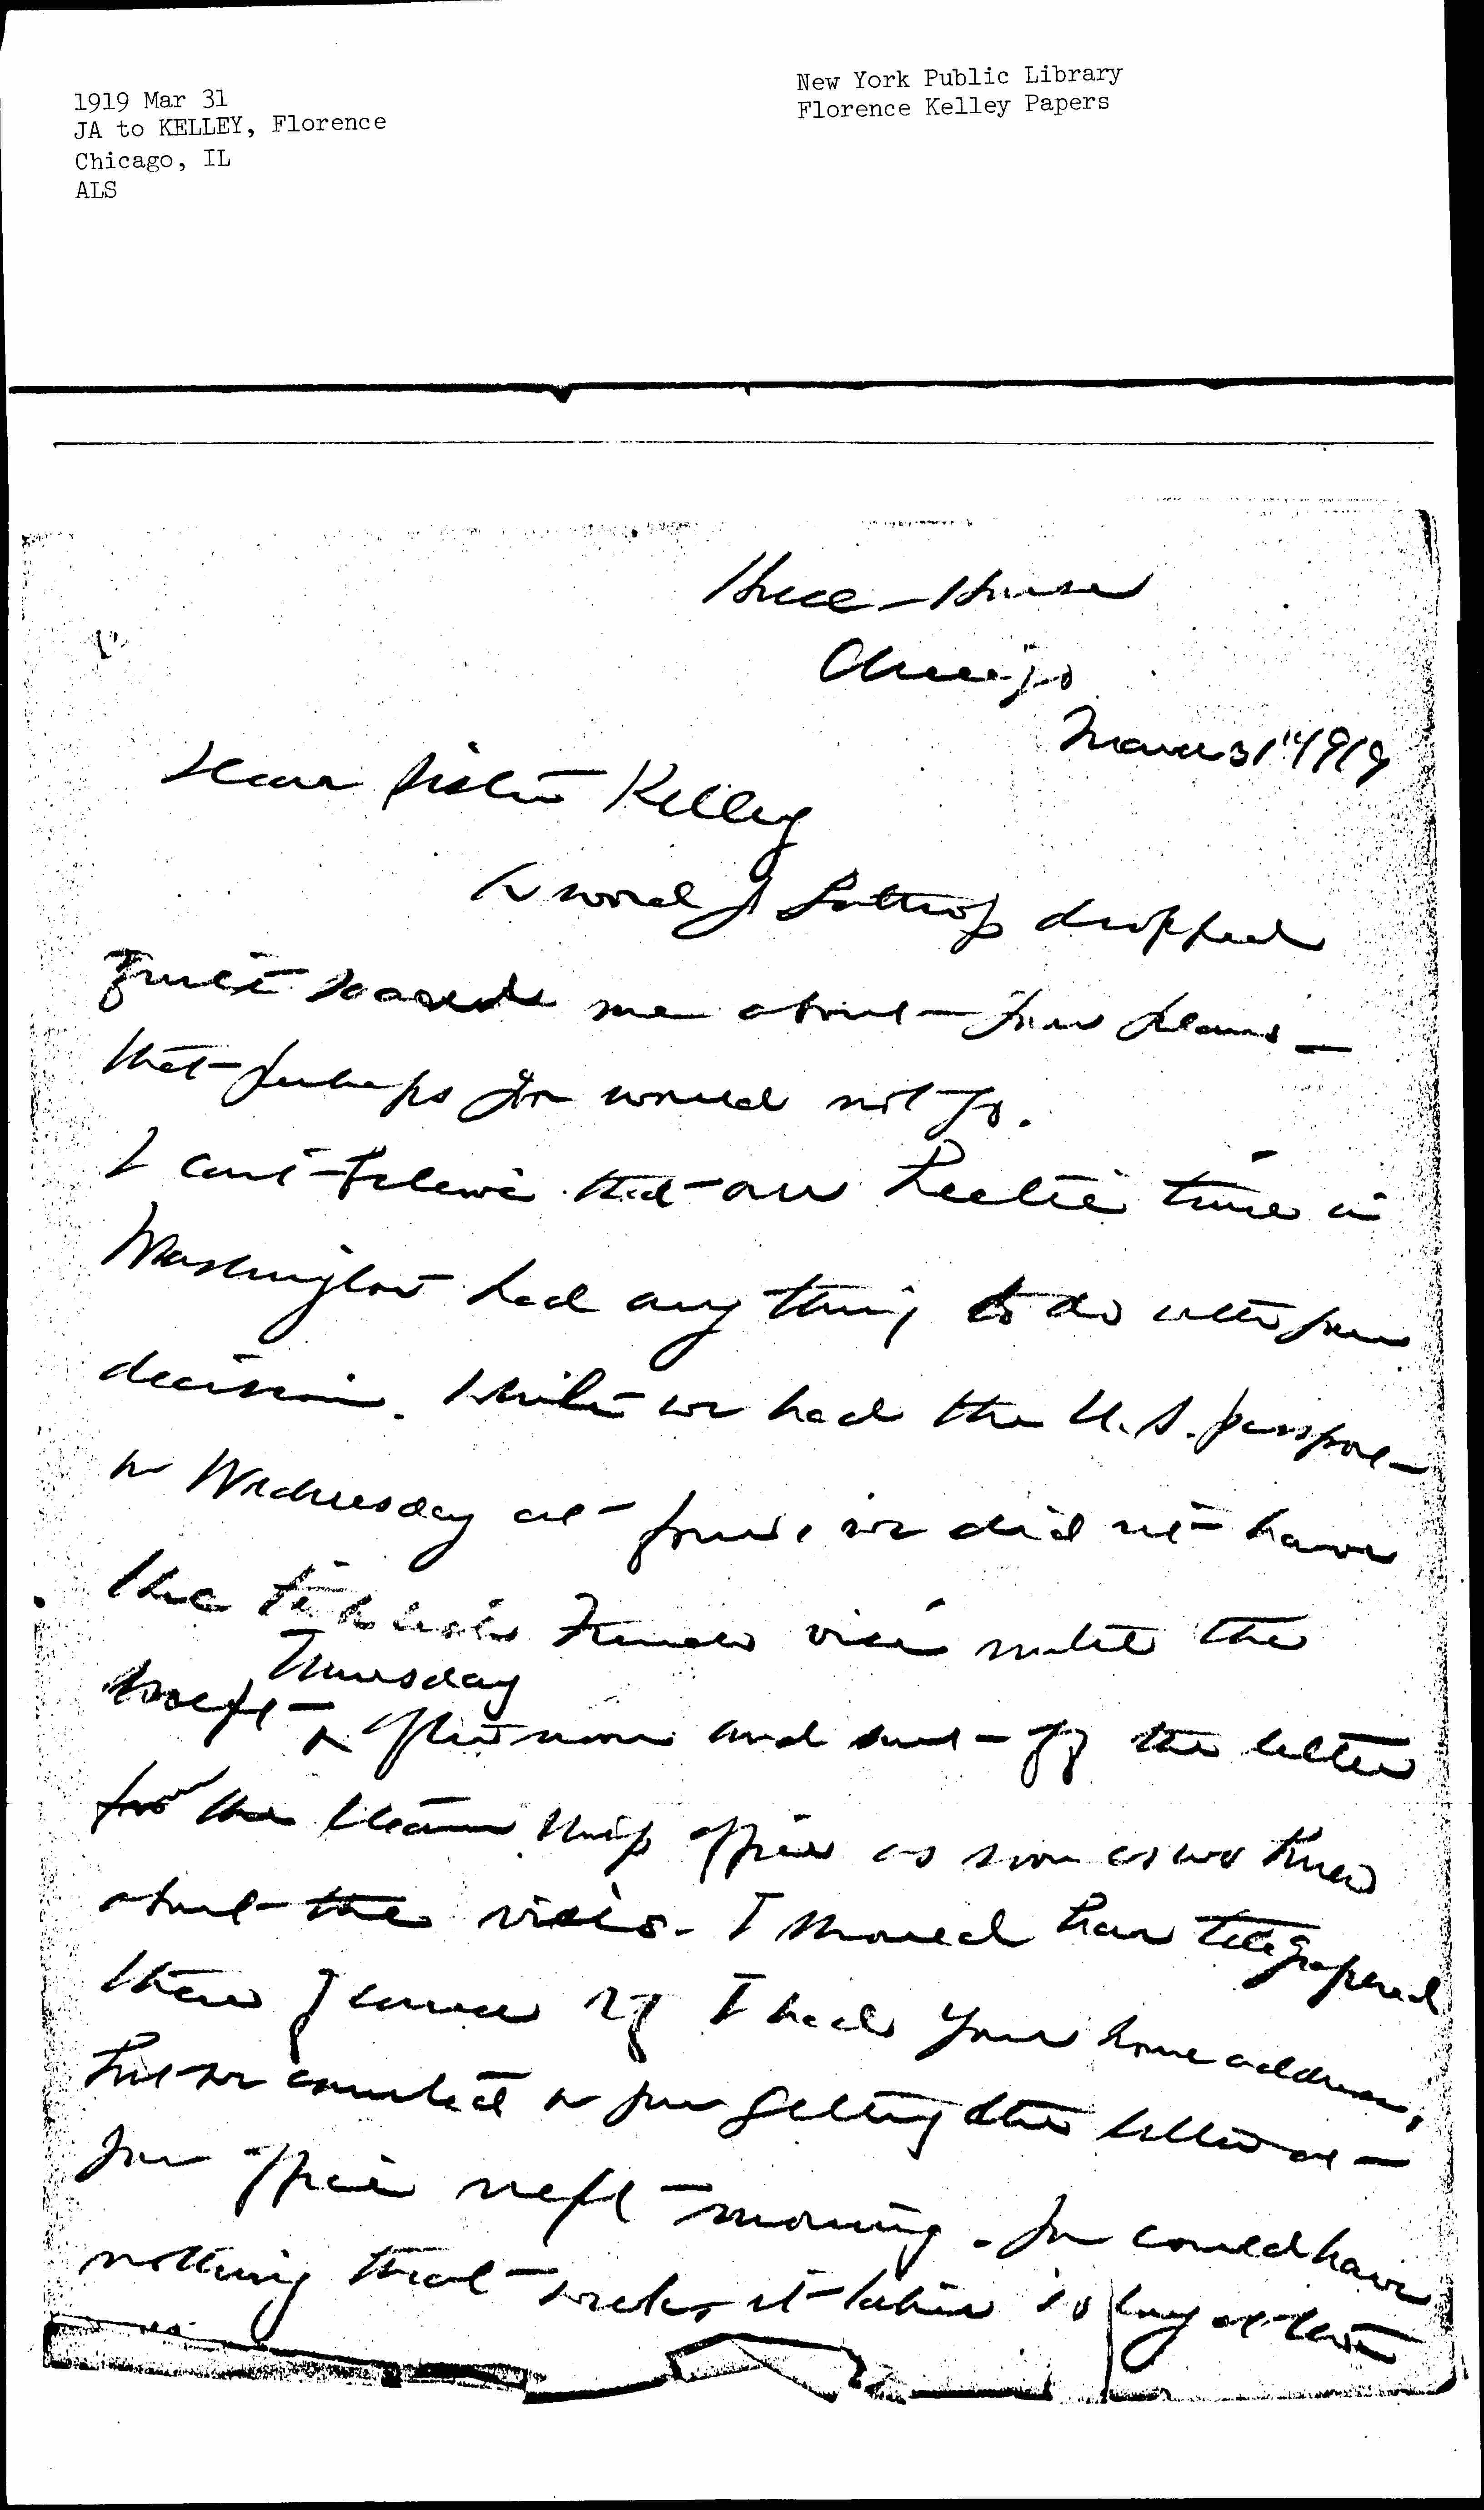 1919 Mar 31
JA to KELLEY, Florence
Chicago, IL
ALS
New York Public Library
Florence Kelley Papers
Hull-House
Chicago
March 31" 1919
Dear Sister Kelley
A word J Lathrop dropped
quite scared me about your plans —
that perhaps you would not go.
I can't believe that our hectic time in
Washington had any thing to do with your
decision. While we had the U.S. passport
on Wednesday at four, we did not have
the French visé until the
next Thursday afternoon and sent off the letter
for the steam ship office as soon as we knew
about the visés. I should have telegraphed
then of course if I had your home address,
but we counted on your getting the letter at
your office next morning. You could have
nothing that week, it takes so long at least